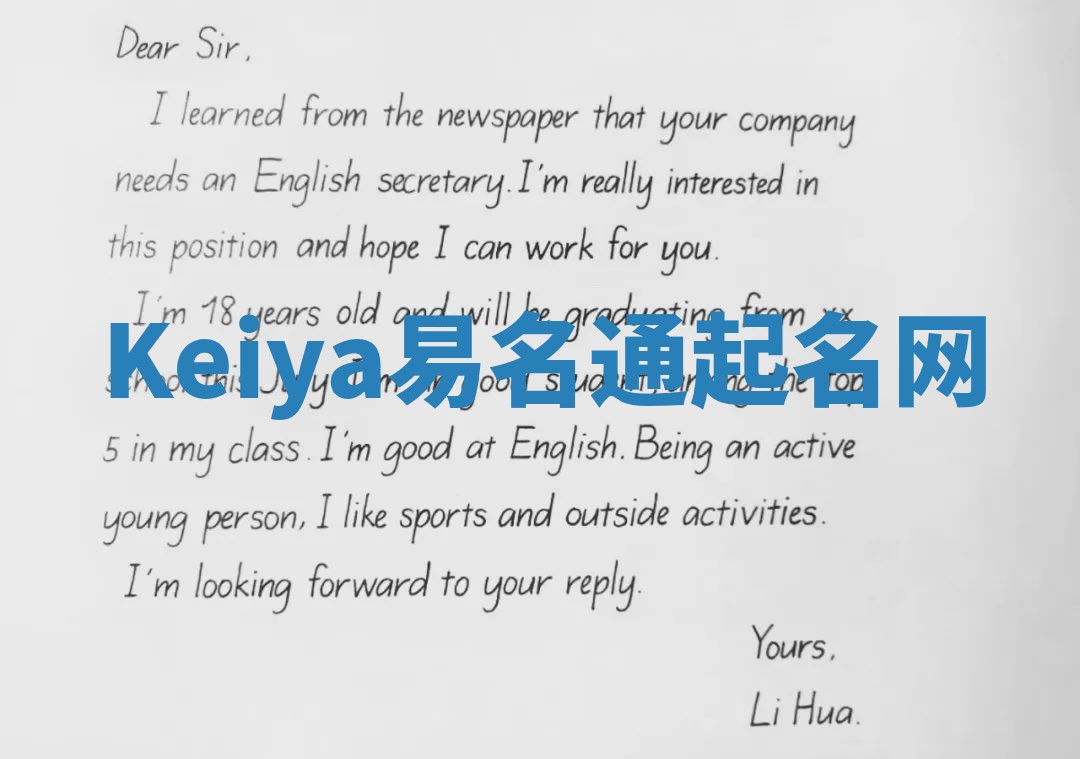 Dear Sir,
I learned from the newspaper that your company
needs an English secretary. I'm really interested in
this position and hope I can work for you.
I'm 18 years old and will be graduating from xx
Keiya易名通起名网
school this July. I'm a good student, among the top
5 in my class. I'm good at English. Being an active
young person, I like sports and outside activities.
I'm looking forward to your reply.
Yours,
Li Hua.